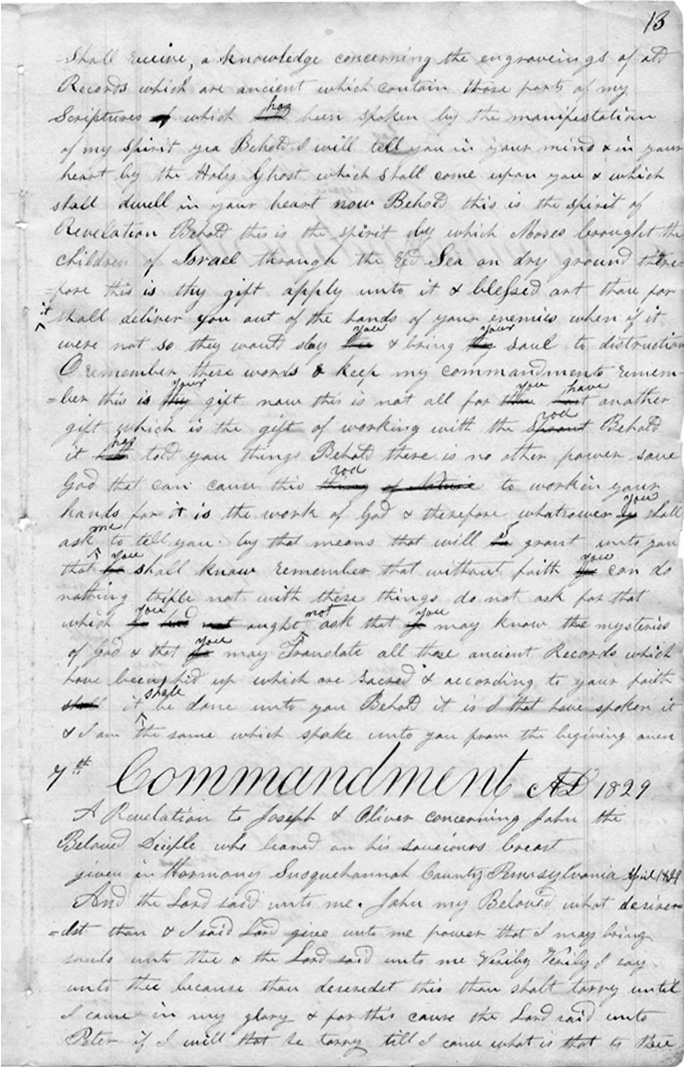 13
Shall recieve, a knowledge concerning the engraveings of old
Records which are ancient which contain those parts of my
Scriptures of which has been spoken by the manifestation
of my spirit yea Behold I will tell you in your mind & in your
heart by the Holy Ghost which shall come upon you & which
shall dwell in your heart now Behold this is the spirit of
Revelation Behold this is the spirit by which Moses brought the
children of Israel through the Red Sea on dry ground there
=fore this is thy gift apply unto it & blessed art thou for
it shall deliver you out of the hands of your enemies when if it
were not so they would slay you & bring your soul to distruction
O remember these words & keep my commandments remem-
=ber this is thy your gift now this is not all for thou you have another
gift which is the gift of working with the rod Behold
it has told you things Behold there is no other power save
God that can cause this thing rod of Nature to work in your
hands for it is the work of God & therefore whatsoever ye you shall
ask me to tell you by that means that will I grant unto you
that ye you shall know remember that without faith ye you can do
nothing trifle not with these things do not ask for that
which ye you had not ought not ask that ye you may know the mysteries
of God & that ye you may Translate all those ancient Records which
have been hid up which are Sacred & according to your faith
shall it shall be done unto you Behold it is I that have spoken it
& I am the same which spake unto you from the begining amen
7th Commandment AD 1829
A Revelation to Joseph & Oliver concerning John the
Beloved Deciple who leaned on his saviours breast
given in Harmony Susquehannah County Pennsylvania April 1829
And the Lord said unto me. John my Beloved what desires-
=dst thou & I said Lord give unto me power that I may bring
souls unto thee & the Lord said unto me Verily Verily I say
unto thee because thou desiredst this thou shalt tarry until
I come in my glory & for this cause the Lord said unto
Peter if I will that he tarry till I come what is that to thee